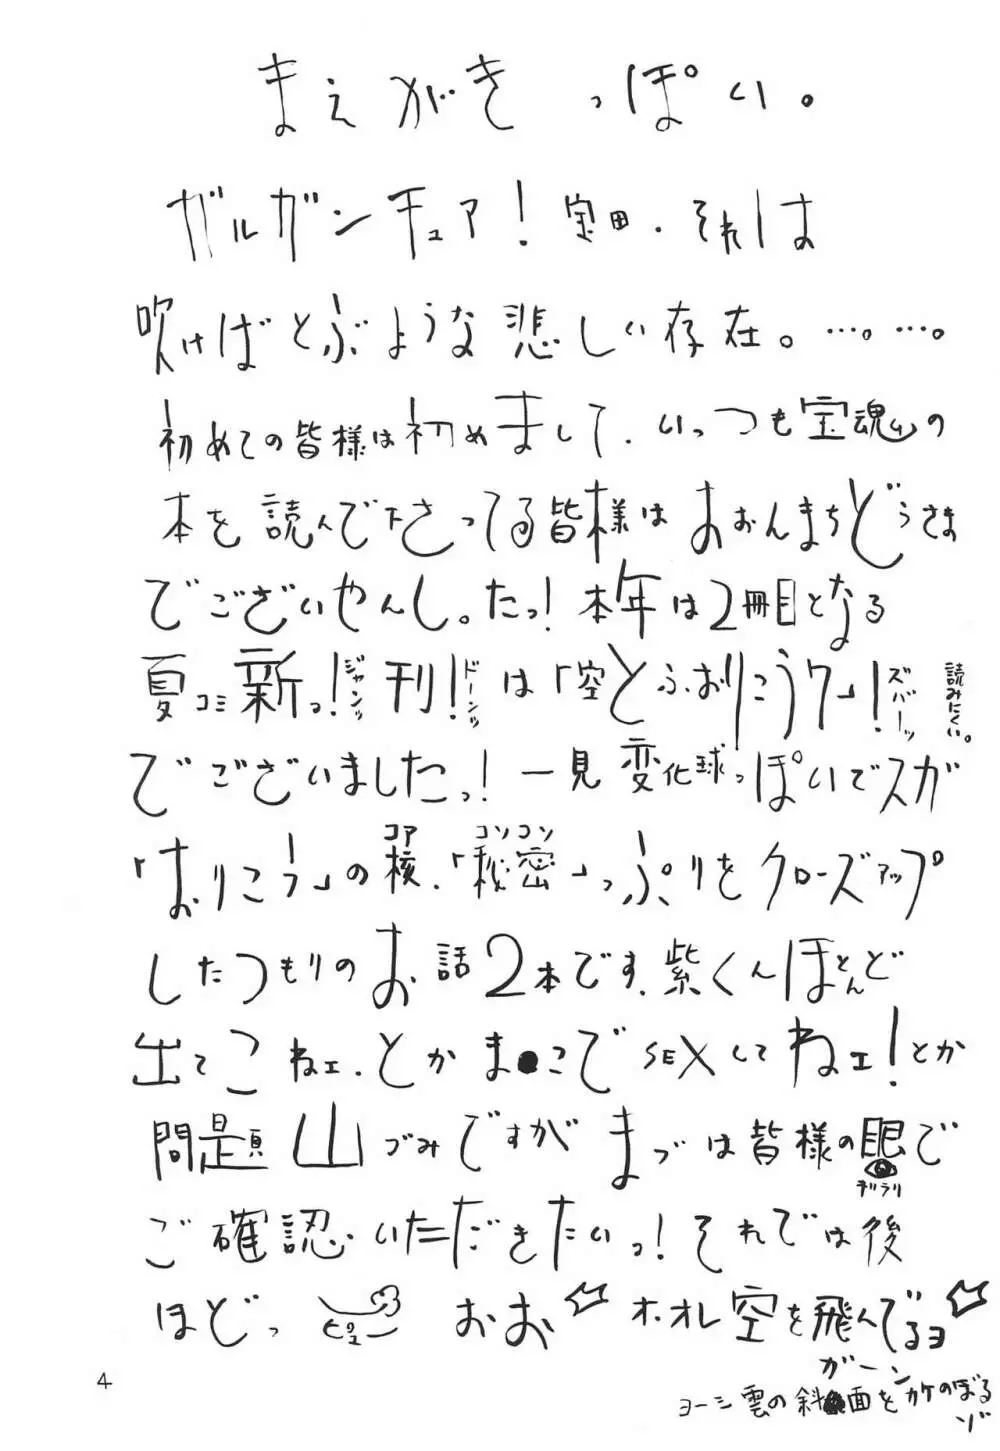 まえがきっぽい。
ガルガンチュア!宝田.それは
吹けばとぶような悲しい存在。…。…。
初めての皆様は初めまして.いっつも宝魂ムの
本を読んで下さってる皆様はおおんまちどうさま
でございやんし。たっ!本年は2冊目となる
夏コミ新っ!ジャンッ刊!ドーンッは「空とぶおりこうワ」!ズバーッ
読みにくい。
でございましたっ!一見変化球っぽいでスガ
コア コソコソ
「おりこう」の核.「秘密」っぷりをクローズアップ
したつもりのお話2本です.紫くんほとんど
出てこねェ.とかま●こでSEXしてねェ!とか
問題山づみですがまづは皆様の眼で
ギリラリ
ご確認いただきたいっ!それでは後
ほどっ ピュー おお ホオレ空を飛んでるヨ
ガーン
ヨーシ雲の斜面をカケのぼる
ゾ
4